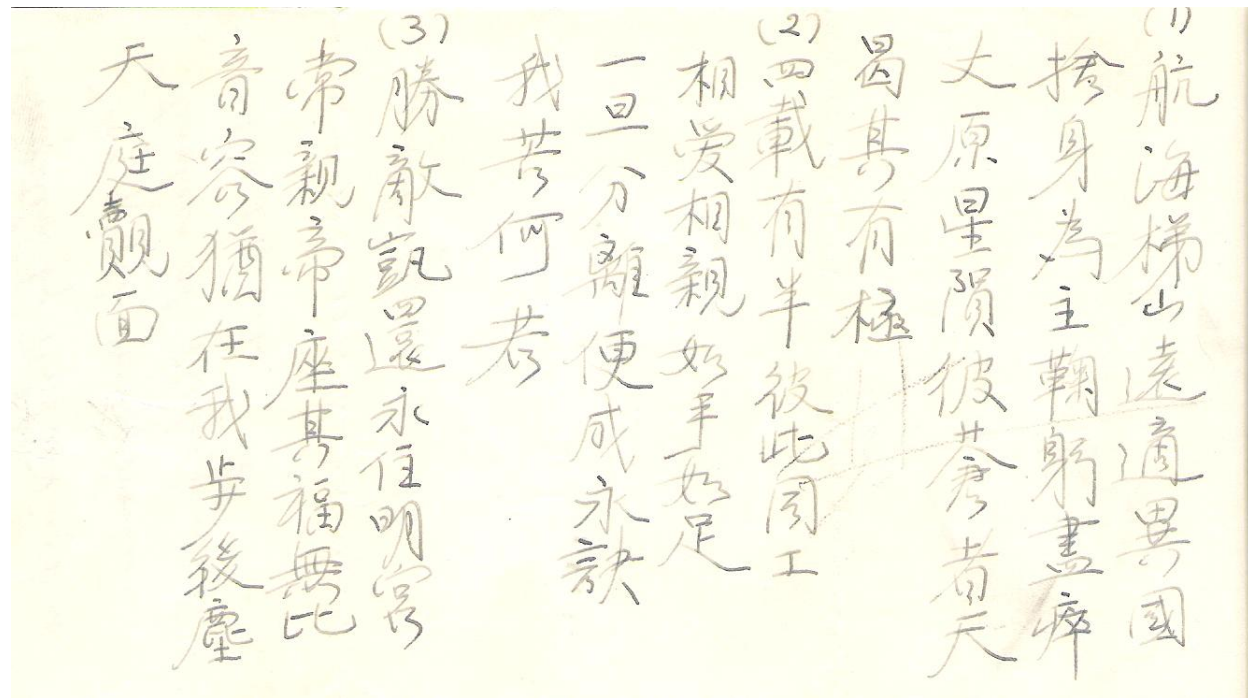 (1)航海梯山遠適異國
捨身為主鞠躬盡瘁
丈原星隕彼蒼者天
曷其有極
(2)四載有半彼此同工
相愛相親如手如足
一旦分離便成永訣
我苦何若
(3)勝敵凱還永住明宮
常親帝座其福無比
音容猶在我步後塵
天庭覿面